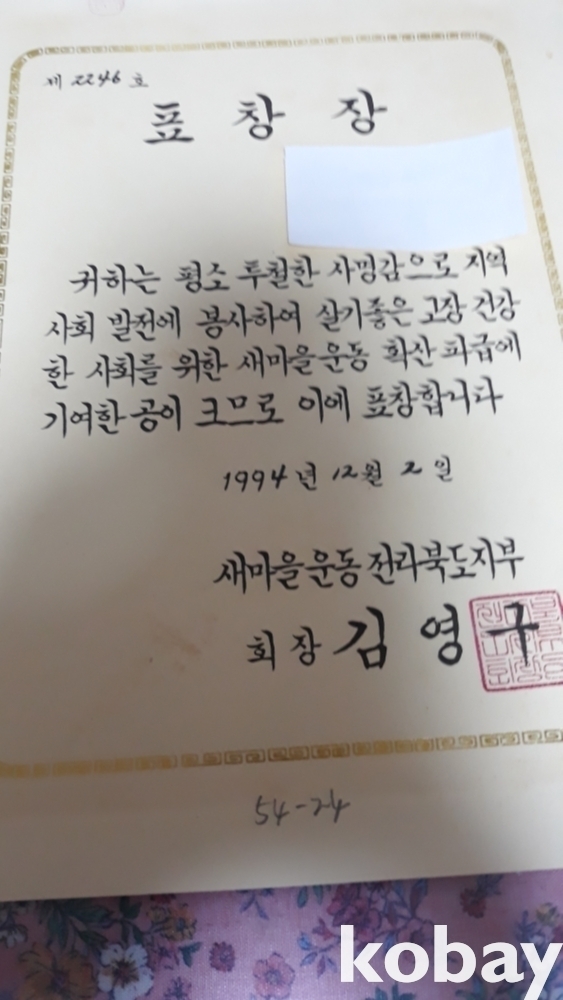 제 2246 호
표 창 장
귀하는 평소 투철한 사명감으로 지역
사회 발전에 봉사하여 살기좋은 고장 건강
한 사회를 위한 새마을운동 확산 파급에
기여한 공이 크므로 이에 표창합니다
1994년 12월 2일
새마을운동 전라북도지부
회장 김영구
54-24
kobay